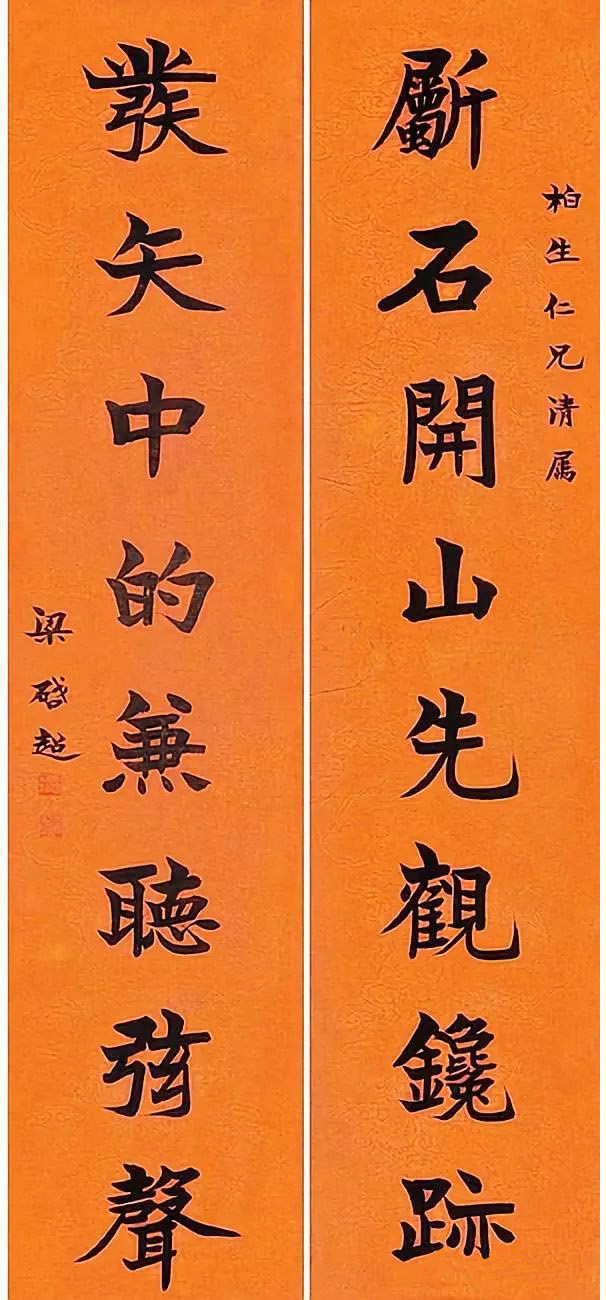 柏生仁兄清属
斸石開山先觀鑱跡
發矢中的兼聽弦聲
梁啟超